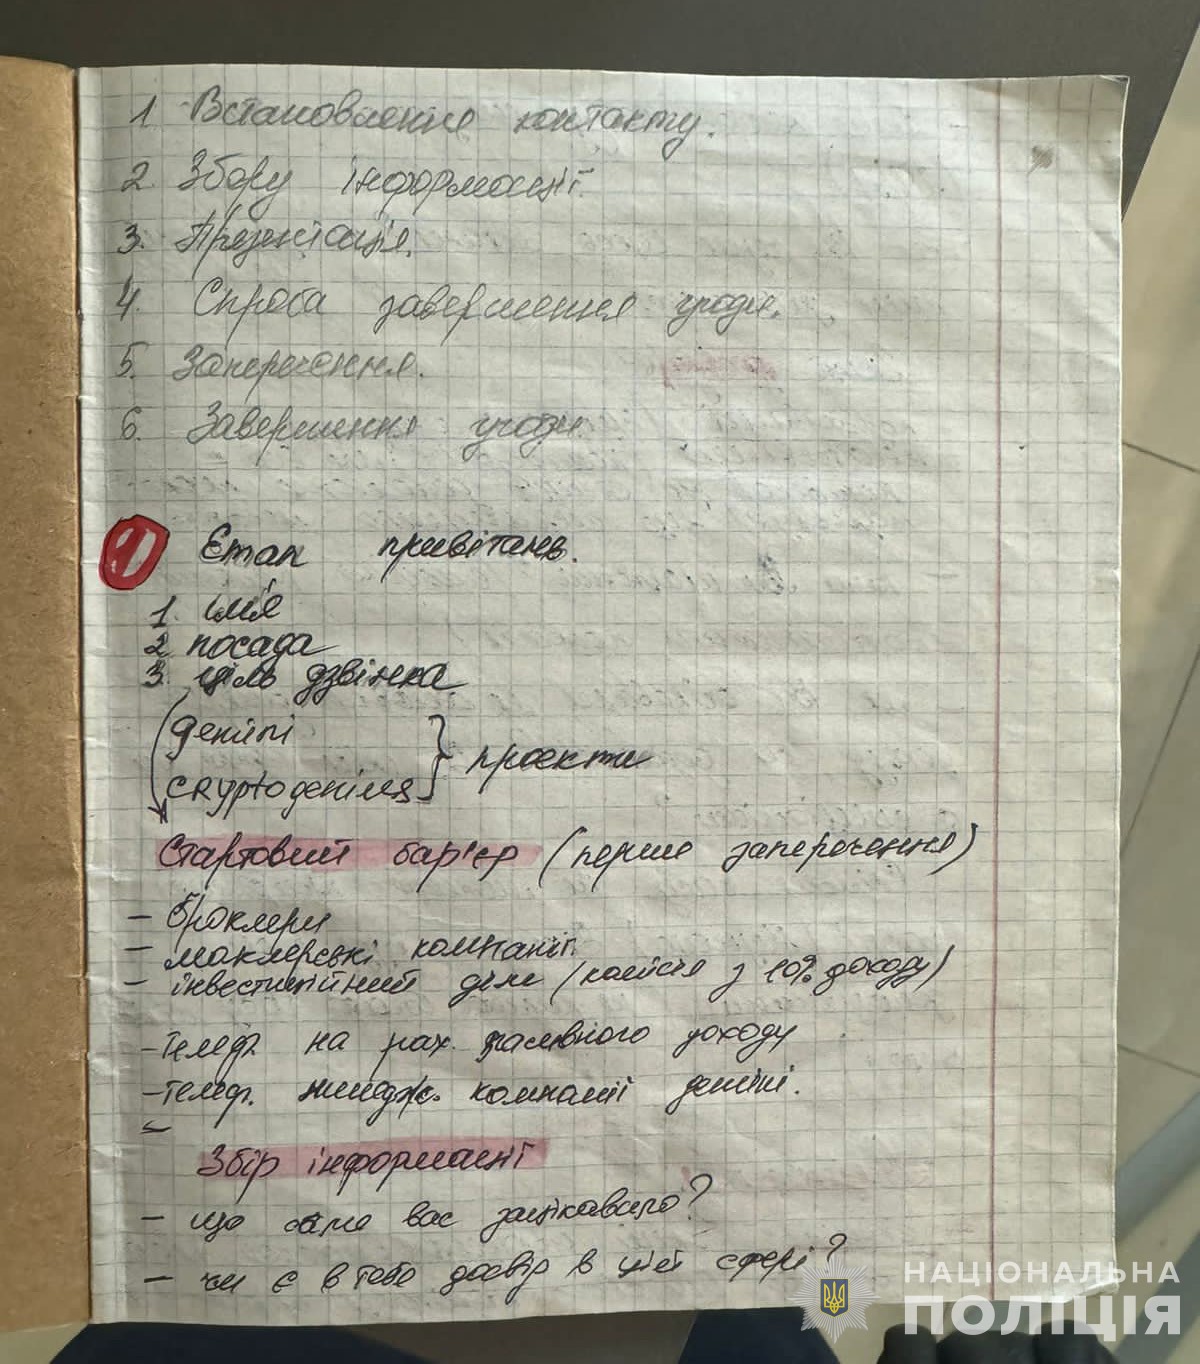 1 Встановлення контакту.
2. Збору інформації.
3. Презентація.
4. Спроба завершення угоди.
5. Заперечення.
6. Завершення угоди
1 Етап привітань.
1. імя
2 посада
3. ціль дзвінка.
проекти
Стартовий барʼєр (перше заперечення)
- брокери
- маклерські компанії
- інвестиційний (комісія з 10% доходу)
- телеф на рах. пасивного доходу
- телеф. компанії
Збір інформації
- що саме вас зацікавило?
- чи є в тебе досвір в цій сфері?
НАЦІОНАЛЬНА
ПОЛІЦІЯ